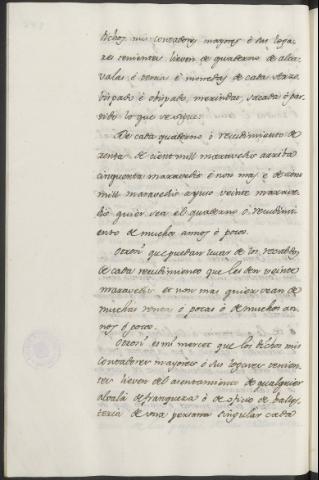 dichos mis contadores mayores ò sus loga-
res tenientes lieven de quaderno de alca-
valas è tercia è monedas de cada Arzo-
bispado è obispado, merindat, sacada ò par-
tido lo que se sigue:
De cada quaderno ò recudimiento de
renta de cient mill maravedis arriba
cinquenta maravedis è non mas, è de cien
mill maravedis ayuso veinte marave-
dis quier sea el quaderno ò recudimi-
ento de muchos annos ò pocos.
Otrosi que puedan levar de los
de cada recudimiento que les den veinte
maravedis et non mas quier sean de
muchas rentas ò pocas ò de muchos an-
nos ò pocos.
Otrosi es mi merced que los dichos mis
contadores mayores ò sus logares tenien-
tes lieven del asentamiento de qualquier
alvalá de franqueza ò de oficio de balles-
teria de una persona singular cada